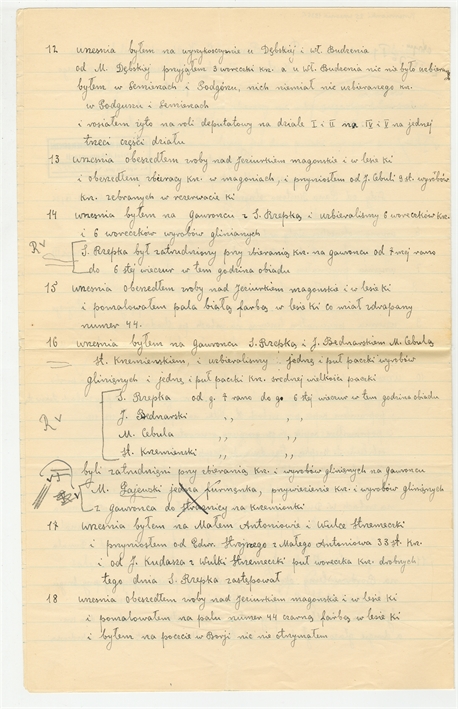 12 wrzesnia byłem na wyzykosczyznie u Dębskiej i wł. Budzenia
od M. Dębskiej przyjąłem 3 woreczki kr. a u wł. Budzenia nic nie było uzbierane
byłem w Semienach i Podgórzu, nich niemiał nic uzbieranego kr.
w Podgurzu i Semienach
i rosiałem żyto na roli deputatowy na dziale I i II na IV i V na jednej
trzeci części działu
13 wrzesnia obeszedłem zroby nad Jeziurkiem magonskie i w lesie ki
i obeszedłem zbieracy kr. w magoniach, i przyniosłem od J. Cebuli 9 st. wyrobów
kr. zebranych w rezerwacie ki
14 wrzesnia byłem na Gawroncu z S. Rzepką i uzbieralismy 6 woreczków kr.
i 6 woreczków wyrobów glinianych
Rv
S. Rzepka był zatrudniony przy zbieraniu kr. na gawroncu od 7 mej rano
do 6 stej wieczur w tem godzina obiadu
15 wrzesnia obeszedłem zroby nad Jeziurkiem magonskie i w lesie ki
i pomalowałem pala białą farbą w lesie ki co miał zdrapany
numer 44.
16 wrzesnia byłem na gawroncu S. Rzepką i J. Bednarskiem M. Cebulą
St. Krzemienskiem, i uzbieralismy jedną i puł paczki wyrobów
glinianych i jedną i puł paczki kr. średnej wielkości paczki
S. Rzepka od g. 7 rano do g. 6 stej wieczur w tem godzine obiadu
Rv
J. Bednarski ,, ,,
M. Cebula ,, ,,
St. Krzemienski ,, ,,
byli zatrudnieni przy zbieraniu kr. i wyrobów glinianych na gawroncu
M. Gajewski jedna furmanka, przywiezienie kr. i wyrobów glinianych
z gawronca do strażnicy na Krzemionki
17 wrzesnia byłem na Małem Antoniowie i Wulce Strzemecki
i przyniosłem od Edw. Strojnego z Małego Antoniowa 38 st. kr.
i od J. Kudasza z Wulki Strzemecki puł woreczka kr. drobnych
tego dnia S. Rzepka zastępował
18 wrzesnia obeszedłem zroby nad Jeziurkiem magonskie i w lesie ki
i pomalowałem na palu numer 44 czarną farbą w lesie ki
i byłem na poczcie w Borji nic nie otrymałem